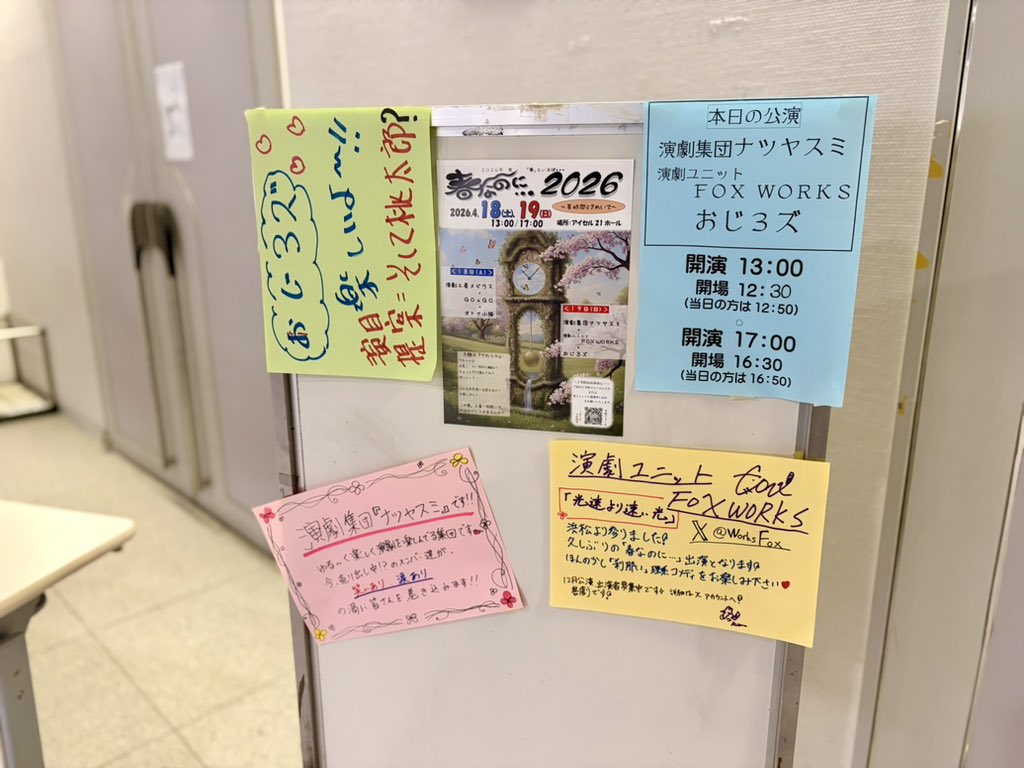 おじ3ズ
楽しいよ~!!
演目
提案=そして桃太郎?
2026年 春
春なのに… 2026
2026.4.18(土)、19(日)
13:00/17:00 場所:アイセル21ホール
<18日(土)>
演劇工房メビウス
GO★GO
オトナ小隊
<19日(日)>
演劇集団ナツヤスミ
演劇ユニット
FOX WORKS
おじ3ズ
本日の公演
演劇集団ナツヤスミ
演劇ユニット
FOX WORKS
おじ3ズ
開演 13:00
開場 12:30
(当日の方は 12:50)
開演 17:00
開場 16:30
(当日の方は 16:50)
演劇集団『ナツヤスミ』です!!
ゆる~く楽しく演劇を楽しんでる集団です
今売り出し中!?のメンバー達が、
笑いあり 涙あり
の渦に皆さんを巻き込みます!!
演劇ユニット
FOX WORKS
「光速より速い光」
X @WorksFox
浜松より参りました
久しぶりの「春なのに…」出演となります
ほんのかし「利用い」理系コメディをお楽しみ下さい♥
12月公演、出演者募集中です 詳細は、X アカウントへ